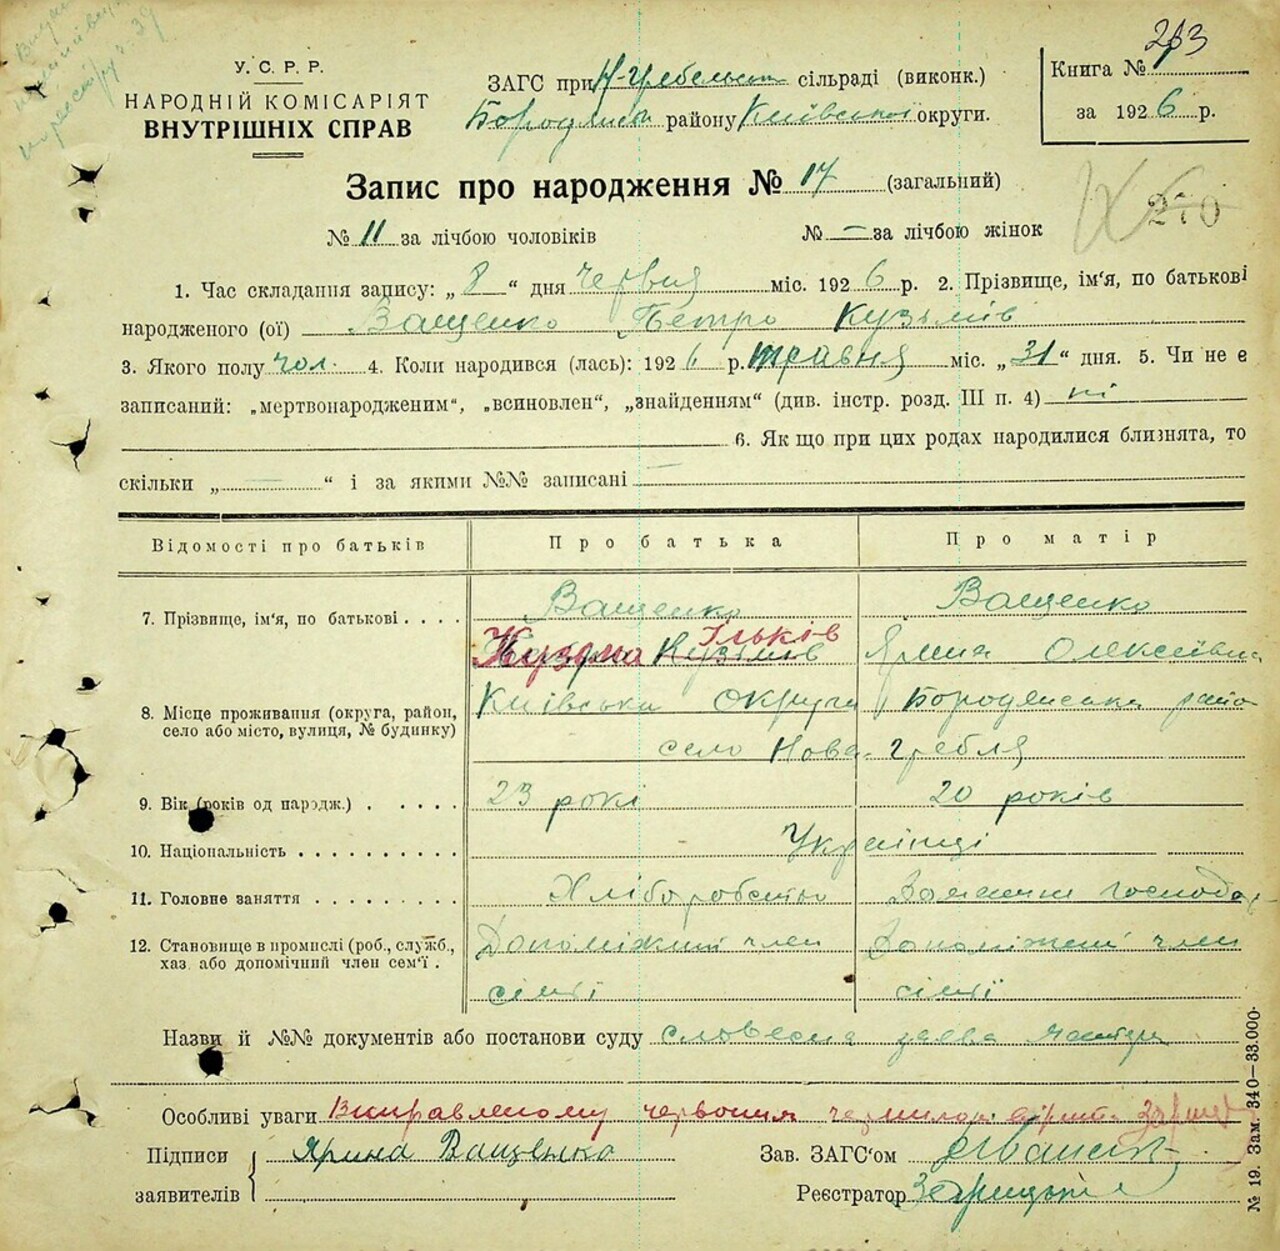 263
У. С. Р. Р.
НАРОДНІЙ КОМІСАРІЯТ
ВНУТРІШНІХ СПРАВ
ЗАГС при Н-Гребельськ сільраді (виконк.)
Бородянськ району Київської округи.
Книга №
за 1926 р.
Запис про народження № 17 (загальний)
№ 11 за лічбою чоловіків № — за лічбою жінок
270
1. Час складання запису: „ 8 “ дня червня міс. 1926 р. 2. Прізвище, ім‘я, по батькові
народженого (ої) Ващенко Петро Кузьмів
3. Якого полу чол. 4. Коли народився (лась): 1926 р. травня міс. „ 31 “ дня. 5. Чи не є
записаний: „мертвонародженим“, „всиновлен“, „знайденням“ (див. інстр. розд. III п. 4) ні
6. Як що при цих родах народилися близнята, то
скільки „ — “ і за якими №№ записані —
Відомості про батьків Про батька Про матір
7. Прізвище, ім‘я, по батькові . . . . Ващенко Ващенко
Кузьма Ільків Кузьмів Ярина Олексіївна
8. Місце проживання (округа, район, Київська округа Бородянська район
село або місто, вулиця, № будинку) село Нова-Гребля
9. Вік (років од народж.) . . . . . 23 рокі 20 років
10. Національність . . . . . . . . . . Українці
11. Головне заняття . . . . . . . . . Хліборобство Домашнє господар
12. Становище в промислі (роб., служб., Допоміжний член Допоміжний член
хаз. або допомічний член сем‘ї . сімї сімї
Назви й №№ документів або постанови суду словесна заява матері
Особливі уваги Виправленому червоним чернилом вірить
Підписи Ярина Ващенко Зав. ЗАГС‘ом
заявителів Реєстратор
№ 19. Зам. 340—33.000·